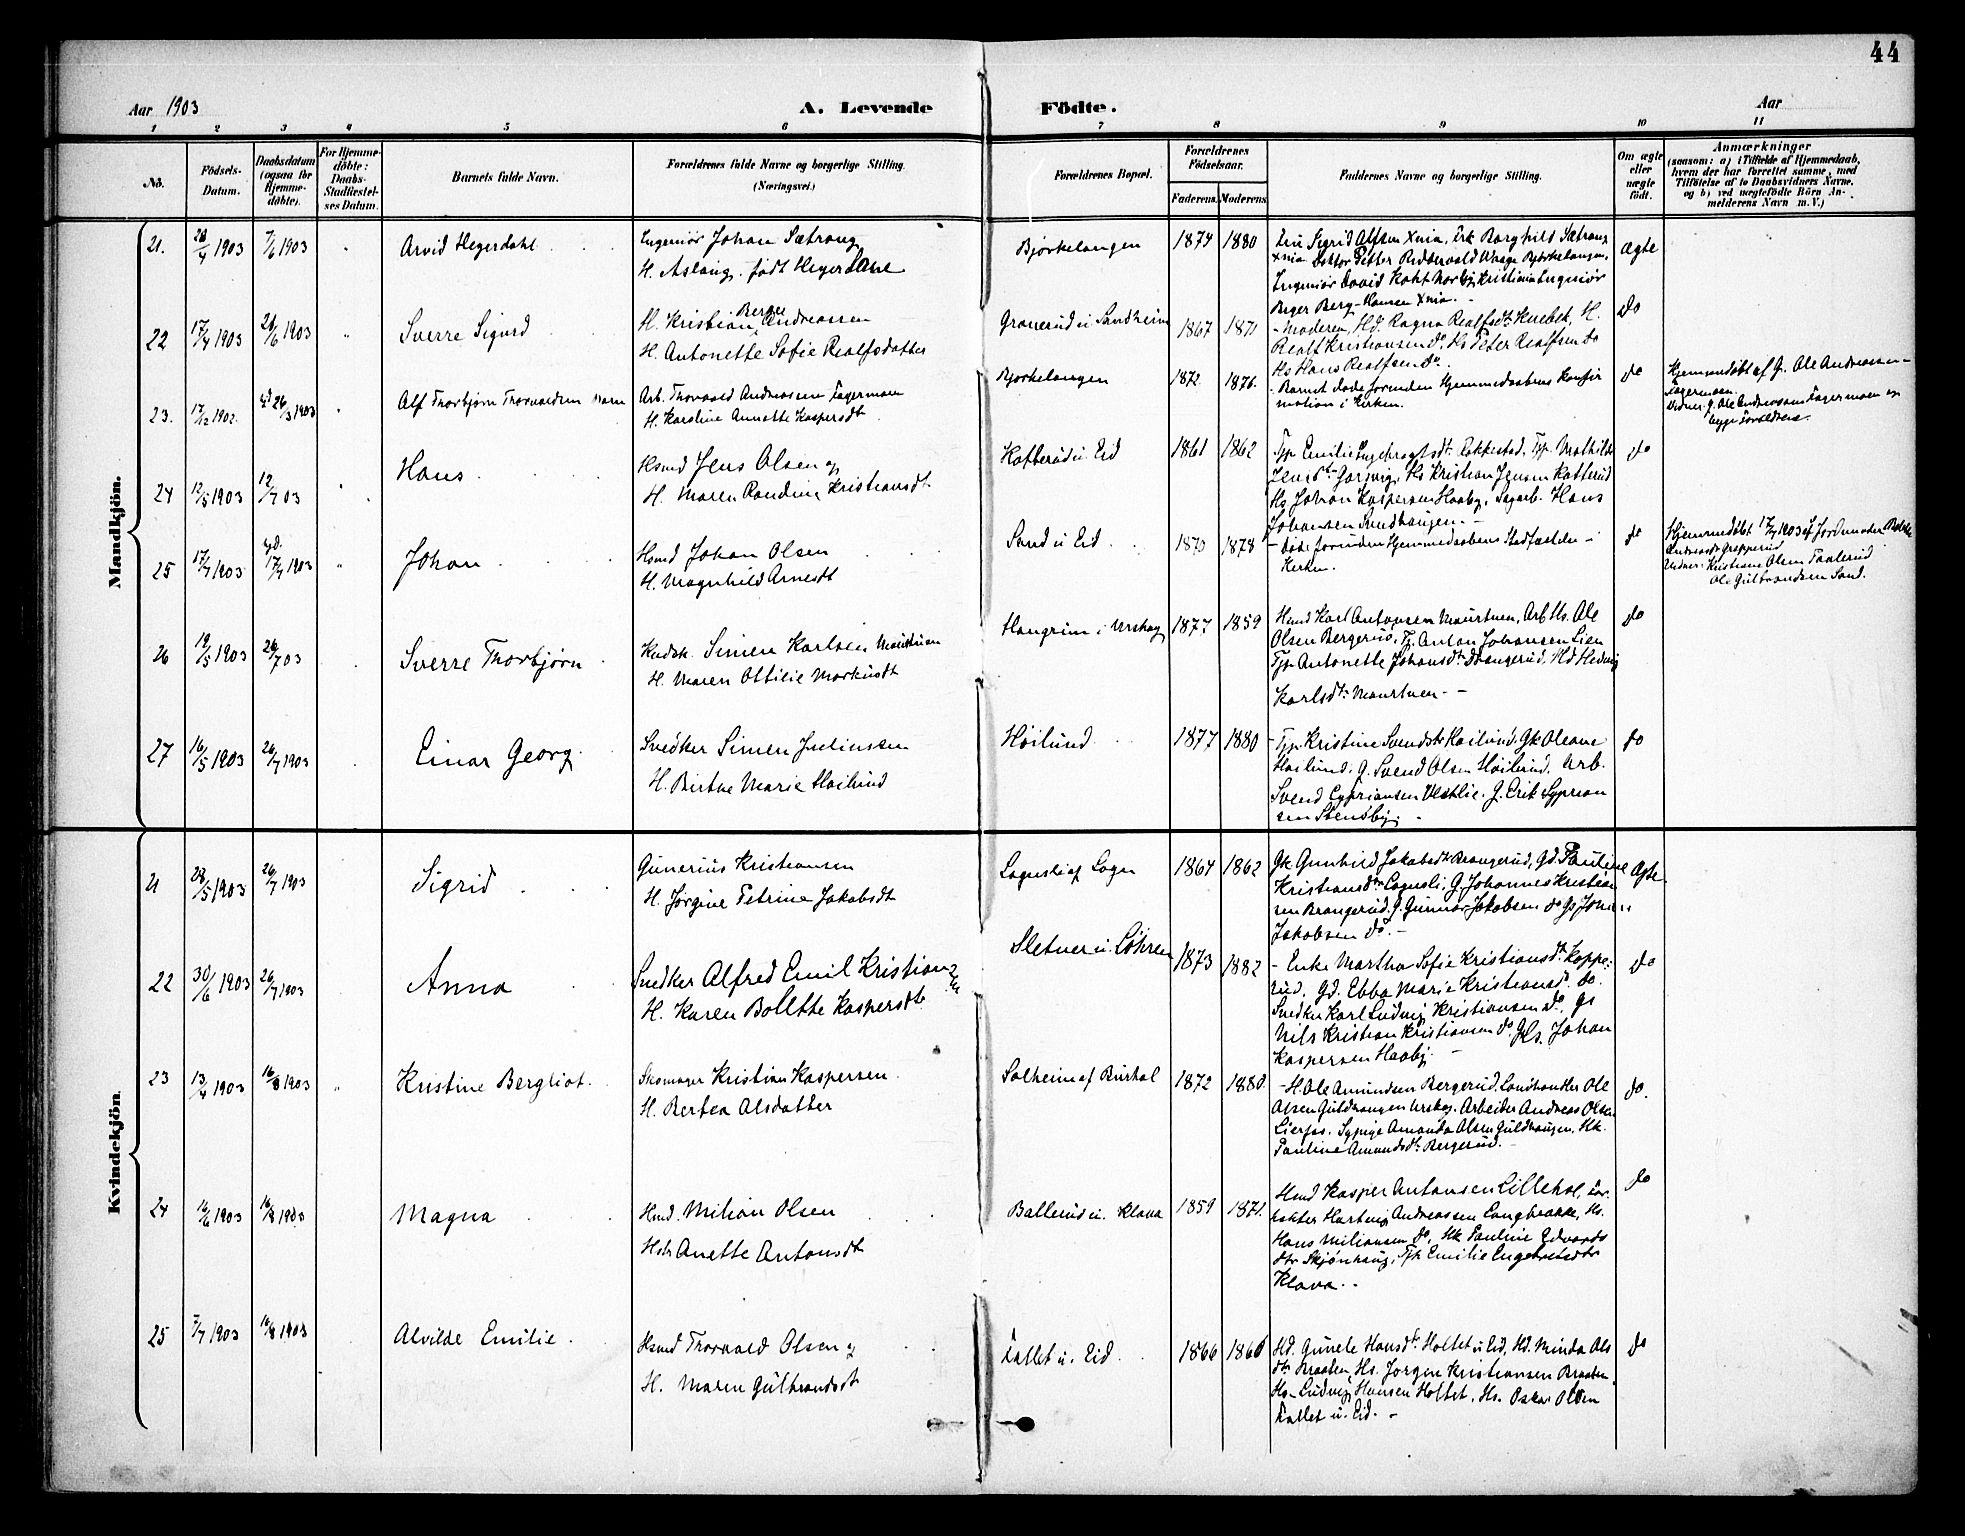 44
Aar 1903
A. Levende
Födte.
Aar
1 2 3 4 5 6 7 8 9 10 11
No.
Födsels-
Datum.
Daabsdatum
(ogsaa for
Hjemme-
döbte).
For Hjemme-
döbte:
Daabs-
Stadfæstel-
ses Datum.
Barnets fulde Navn.
Forældrenes fulde Navne og borgerlige Stilling.
(Næringsvei.)
Forældrenes Bopæl.
Forældrenes
Födselsaar.
Faderens.
Moderens.
Faddernes Navne og borgerlige Stilling.
Om ægte
eller
uægte
födt.
Anmærkninger
(saasom: a) i Tilfælde af Hjemmedaab,
hvem der har forrettet samme, med
Tilföielse af to Daabsvidners Navne,
og b) ved uægtefödte Börn An-
melderens Navn m. V.)
Mandkjön.
21. 28/4 1903 7/6 1903 " Arvid Hegerdahl
Ingeniør Johan Sætrang
H. Aslaug født Hegerdahl
Bjørkelangen 1874 1880
Fru Sigrid Alfsen Xnia, Frk Borghild Sætrang
Xnia Doktor Petter Ridderwold Waage Bjørkelangen,
Ingeniør David Kaht Norby Kristiania Ingeniør
Birger Berg-Hansen Xnia. -
ægte
22 17/4 1903 21/6 1903 " Sverre Sigurd
H. Kristian Berger Andreassen
H. Antonette Sofie Realfsdatter
Granerud u Sandheim 1867 1871
- Moderen, Hd. Ragna Realfsdt. Knebek, H.
Realf Kristiansen do. Hs Peter Realfsen do
Hs Hans Realfsen do.
do
23. 17/12 1902. 26/3 1903 " Alf Thorbjørn Thorvaldsen
Arb. Thorvald Andreassen Fagermoen
H. Karoline Annette Kaspersdt
Bjørkelangen 1872 1876.
- Barnet døde forinden Hjemmedaabens Konfir
mation i Kirken.
do
Hjemmedøbt af G. Ole Andreassen -
Fagermoen.
Vidner: G. Ole Andreassen Fagermoen og
begge Forældrene.
24 12/5 1903 12/7 03 " Hans
Hsmd Jens Olsen og
H. Maren Randine Kristiansdt
Katterud u. Eid 1861 1862
Tjp. Emilie Engebregtsdt. Rakkestad, Tjp. Mathilde
Jensdt. Gorsvig, Hs Kristian Jensen Katterud
Hs Johan Kaspersen Haaby, Sagarb. Hans
Johansen Sandhaugen. -
do
25 17/7 1903 17/7 1903 " Johan
Hsmd Johan Olsen
H. Magnhild Arnesdt
Sand u Eid 1870 1878
- døde forinden Hjemmedaabens Stadfæstelse i
Kirken.
do
Hjemmedøbt 17/7 1903 af Jordmoder
Andreasdt Grepperud
Vidner: Kristiane Olsen Taalerud
Ole Gulbrandsen Sand.
26 19/5 1903 26/7 03 Sverre Thorbjørn
Kudsk. Simen Karlsen Maurtuen
H. Maren Ottilie Markusdt
Hangrim i Urskog 1877 1859
Hsmd Karl Antonsen Maurtuen, Arb Hs. Ole
Olsen Bergerud, Tj. Anton Johansen Lien
Tjp. Antonette Johansdtr Brangerud, Hd Hedvig
Karlsdt. Maurtuen. -
do
27 16/5 1903 26/7 1903 Einar Georg
Snedker Simen Juliussen
H. Birthe Marie Høilund
Høilund 1877 1880
- Tjp. Kristine Svendsdtr Høilund, Gk Oleane
Høilund, G. Svend Olsen Høilund, Arb.
Svend Cypriansen Vestlie, G. Erik Syprian
sen Svendsby. -
do
Kvindekjön.
21 28/5 1903 26/7 1903 Sigrid
Gunerius Kristiansen
H. Jørgine Petrine Jakobsdt
Lognsli af Logn 1864 1862
Gk. Gunhild Jakobsdt. Brangerud, Gd. Pauline
Kristiansdtr Lognsli, G. Johannes Kristian
sen Brangerud. G. Gunnar Jakobsen do Gs Johan
Jakobsen do. -
ægte.
22 30/6 1903 26/7 1903 Anna
Snedker Alfred Emil Kristiansen
H. Karen Bolette Kaspersdt.
Sletner u. Løhren 1873 1882
- Enke Martha Sofie Kristiansdt. Koppe-
rud. Gd. Ebba Marie Kristiansdt. do.
Snedker Karl Ludvig Kristiansen do, gs
Nils Kristian Kristiansen do. Hs. Johan
Kaspersen Haaby. -
do
23 13/4 1903 16/8 1903 " Kristine Bergliot.
Skomager Kristian Kaspersen.
H. Bertea Olsdatter
Solheim af Burhol 1872 1880.
- H Ole Amundsen Bergerud. Landhandler Ole
Olsen Guldhaugen Urskog. Arbeider Andreas Olsen
Lierfos. Sypige Amanda Olsen Guldhaugen, Hk.
Pauline Amundsdt. Bergerud. -
do.
24 16/6 1903 16/8 1903 Magna
Hsmd. Milian Olsen
Hstr Anette Antonsdt
Ballerud u. Klava 1859 1871.
Hsmd Kasper Antonsen Lillehol, For-
rykter Hartvig Andreassen Langbrække, Hs.
Hans Miliansen do, Hk Pauline Edvards
dtr Skjønhaug, Tjp Emilie Engebretsdtr
Klava. -
do
25 7/7 1903 16/8 1903 Alvilde Emilie
Hsmd Thorvald Olsen og
H. Maren Gulbrandsdt
Kallet u. Eid 1866 1866
Hd. Gunele Hansdtr. Holtet u Eid, Hd. Minda Ols
dtr Braaten, Hs. Jørgen Kristiansen Braaten
Hs- Ludvig Hansen Holtet. Hs. Oskar Olsen
Kallet u. Eid. -
do